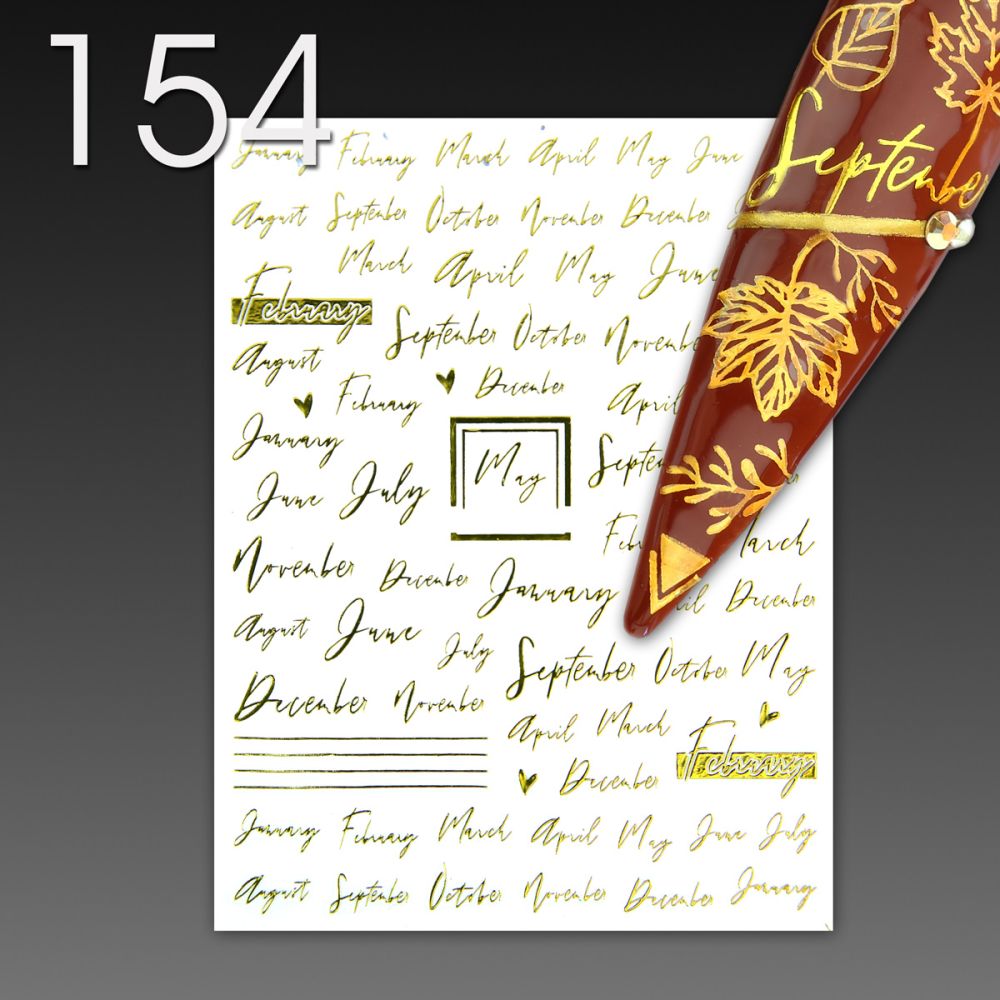 154
January February March April May June
August September October November December
September
March April May June
February
September October November
August
February December April
January
May
June July
March
November December January
December
August June
July September October May
December November
April March
February
December
January February March April May June July
August September October November December January